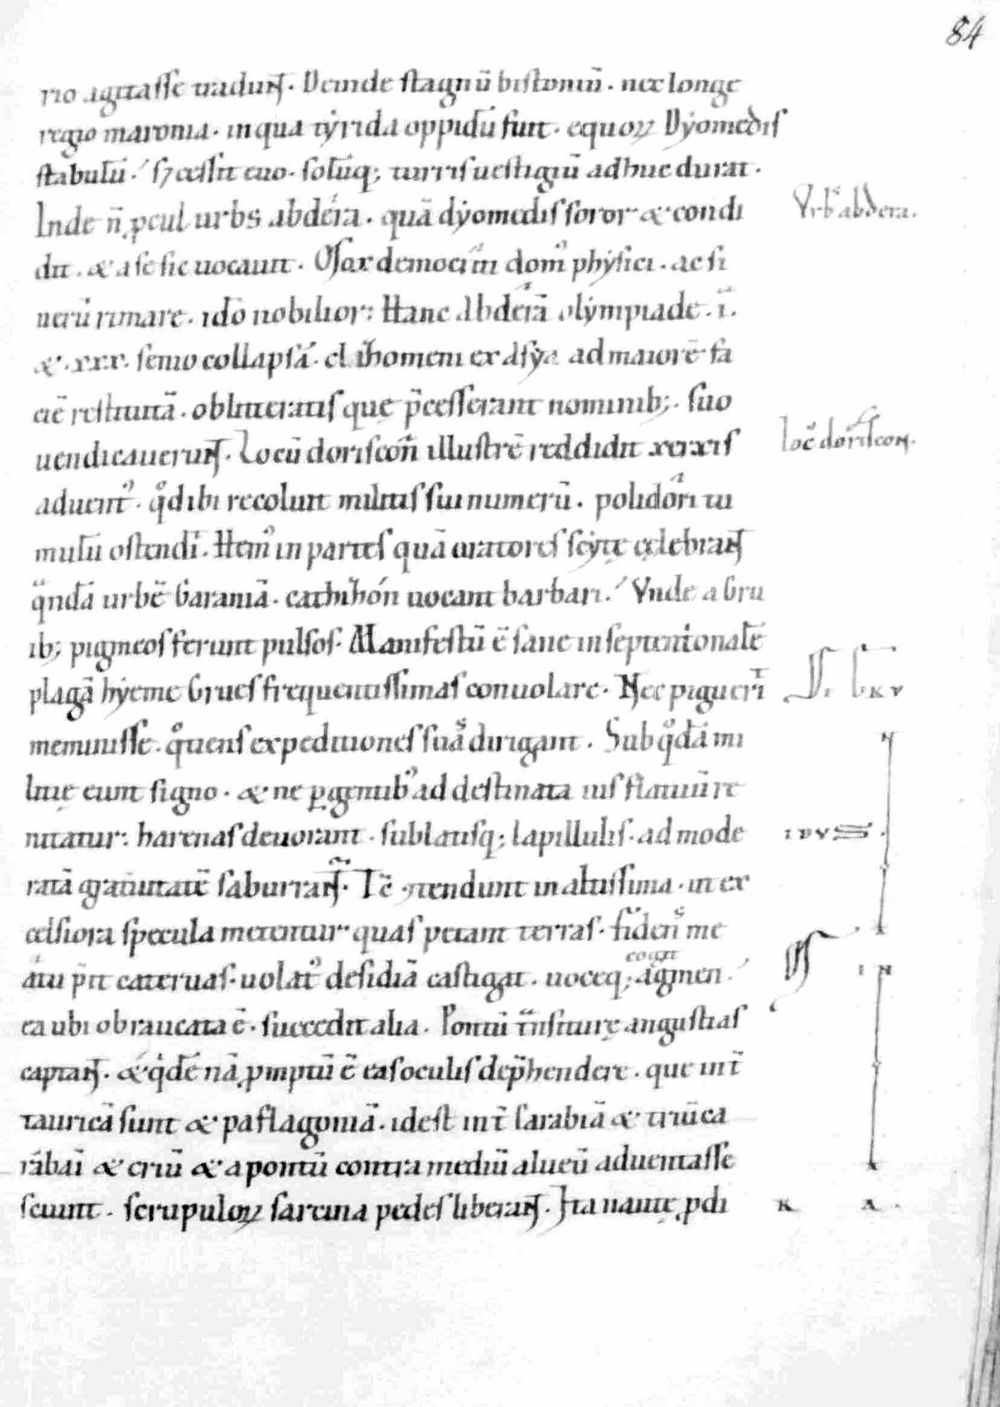 84
rio agitasse tradunt̄. Deinde stagnū bistoniū. nec longe
regio maronia. in qua tyrida oppidū fuit. equoꝝ Dyomedis
stabulū. s; cessit euo. solūq; turris uestigiū adhuc durat.
Inde ñ ꝓcul urbs abdera. quā dyomedis soror & condi
Vrbs abdera.
dit. & a se sic uocauit. Mox democriti domꝰ physici. ac si
uerū rimare. idō nobilior: Hanc Abderā olympiade. i.
&. xxx. senio collapsā. clazhomenii ex Asya ad maiorē fa
ciē restitutā. oblitteratis quę p̄cesserant nominib;. suo
uendicauerunt̄. Locū doriscon̄ illustrē reddidit xerxis
locꝰ doriscon.
aduentꝰ. qd̄ ibi recoluit militis sui numerū. polidori tu
mulū ostendit. Hemꝰ in partes quā aratores scytę celebrant̄
qͣndā urbē Geraniā. cathizhon uocant barbari. Vnde a Gru
ib; pigmeos ferunt pulsos. Manifestū ē sane in septentrionalē
plagā hyeme Grues frequentissimas conuolare. Nec pigueri&
DE GRV
meminisse. qͦtiens expeditiones suas dirigant. Sub qͦdā mi
N
litię eunt signo. & ne ꝑgentibꝰ ad destinata uis flatuū re
nitatur: harenas deuorant. sublatisq; lapillulis. ad mode
IBVS
ratā grauitatē saburrant̄. Tc̄ contendunt in altissima. in ex
celsiora specula metentur quas petant terras. fidens me
atu p̄it cateruas. uolatꝰ desidiā castigat. uoce q; cogit agmen.
IN
ea ubi obraucata ē. succedit alia. Pontū t̄nsiture angustias
captant̄. & qͥdē nā ꝓmptū ē eas oculis dep̄hendere. que int̄
tauricā sunt & paflagoniā. id est int̄ carabiā & triuca
rābai & criū & a pontū contra mediū alueū aduentasse
sciunt. scrupuloꝝ sarcina pedes liberant̄. Ita nautę ꝓdi
K A.